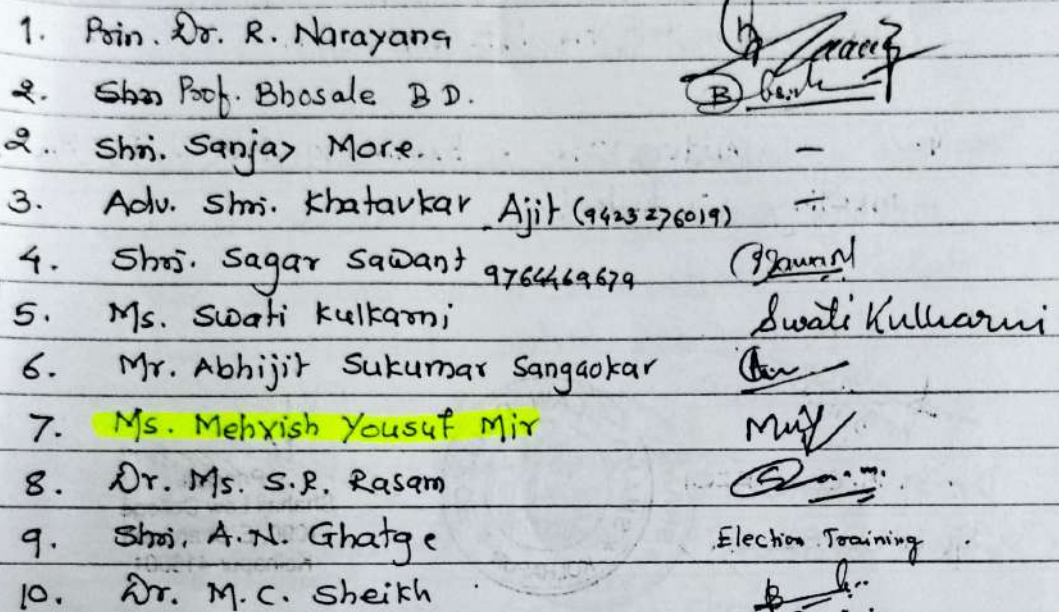 1. Prin. Dr. R. Narayana
2. Shri Prof. Bhosale B D.
2.. Shri. Sanjay More. -
3. Adv. Shri. Khatavkar Ajit (9423276019) -
4. Shri. Sagar Sawant 9764469679
5. Ms. Swati Kulkarni Swati Kulkarni
6. Mr. Abhijit Sukumar Sangaokar
7. Ms. Mehvish Yousuf Mir
8. Dr. Ms. S.R. Rasam
9. Shri. A.N. Ghatge Election Training.
10. Dr. M.C. Sheikh